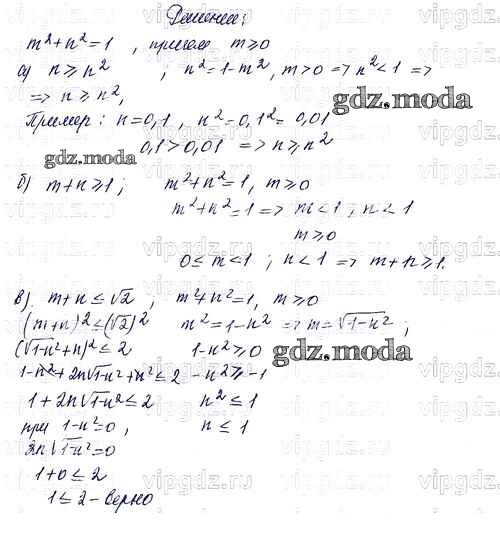 Решение:
m²+n²=1 , причем m≥0
а) n≥n² ; n²=1-m², m>0 => n²<1 =>
=> n≥n²,
Пример: n=0,1, n²=0,1²= 0,01
0,1>0,01 => n≥n²
gdz.moda
gdz.moda
б) m+n≥1; m²+n²=1, m≥0
m²+n²=1 => m<1, n<1
m≥0
0≤m<1 ; n<1 => m+n≥1.
в) m+n≤√2 , m²+n²=1, m≥0
(m+n)²≤(√2)² m²=1-n² => m=√1-n² ;
(√1-n²+n)²≤2 1-n²≥0
gdz.moda
1-n²+2n√1-n²+n²≤2 -n²≥-1
1+2n√1-n²≤2 n²≤1
при 1-n²=0, n≤1
2n√1-n²=0
1+0≤2
1≤2 - верно
vipgdz.ru